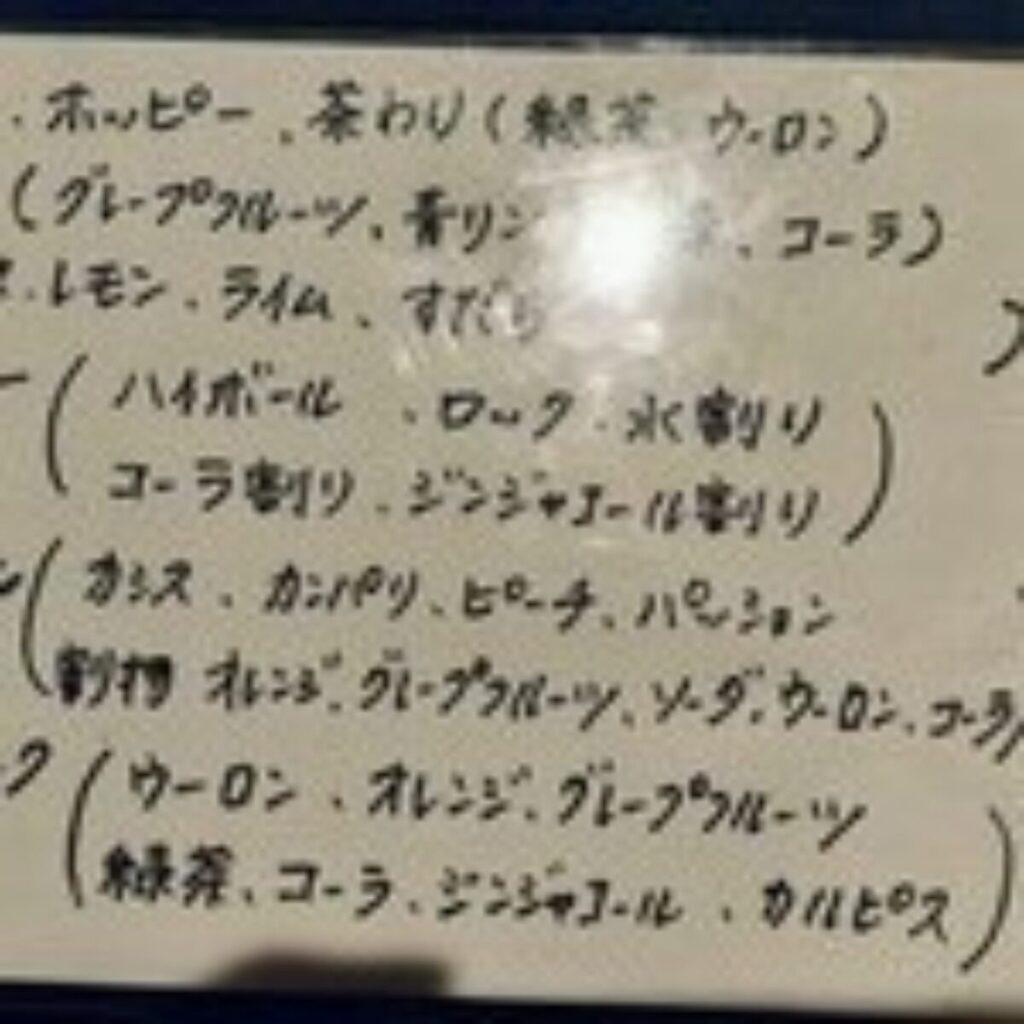 ・ホッピー、茶わり(緑茶、ウーロン)
(グレープフルーツ、青リン 、コーラ)
・レモン、ライム、すだち
ー(ハイボール、ロック、水割り
コーラ割り、ジンジャエール割り)
(カシス、カンパリ、ピーチ、パッション
割材 オレンジ、グレープフルーツ、ソーダ、ウーロン、コーラ
ック(ウーロン、オレンジ、グレープフルーツ
緑茶、コーラ、ジンジャエール、カルピス)